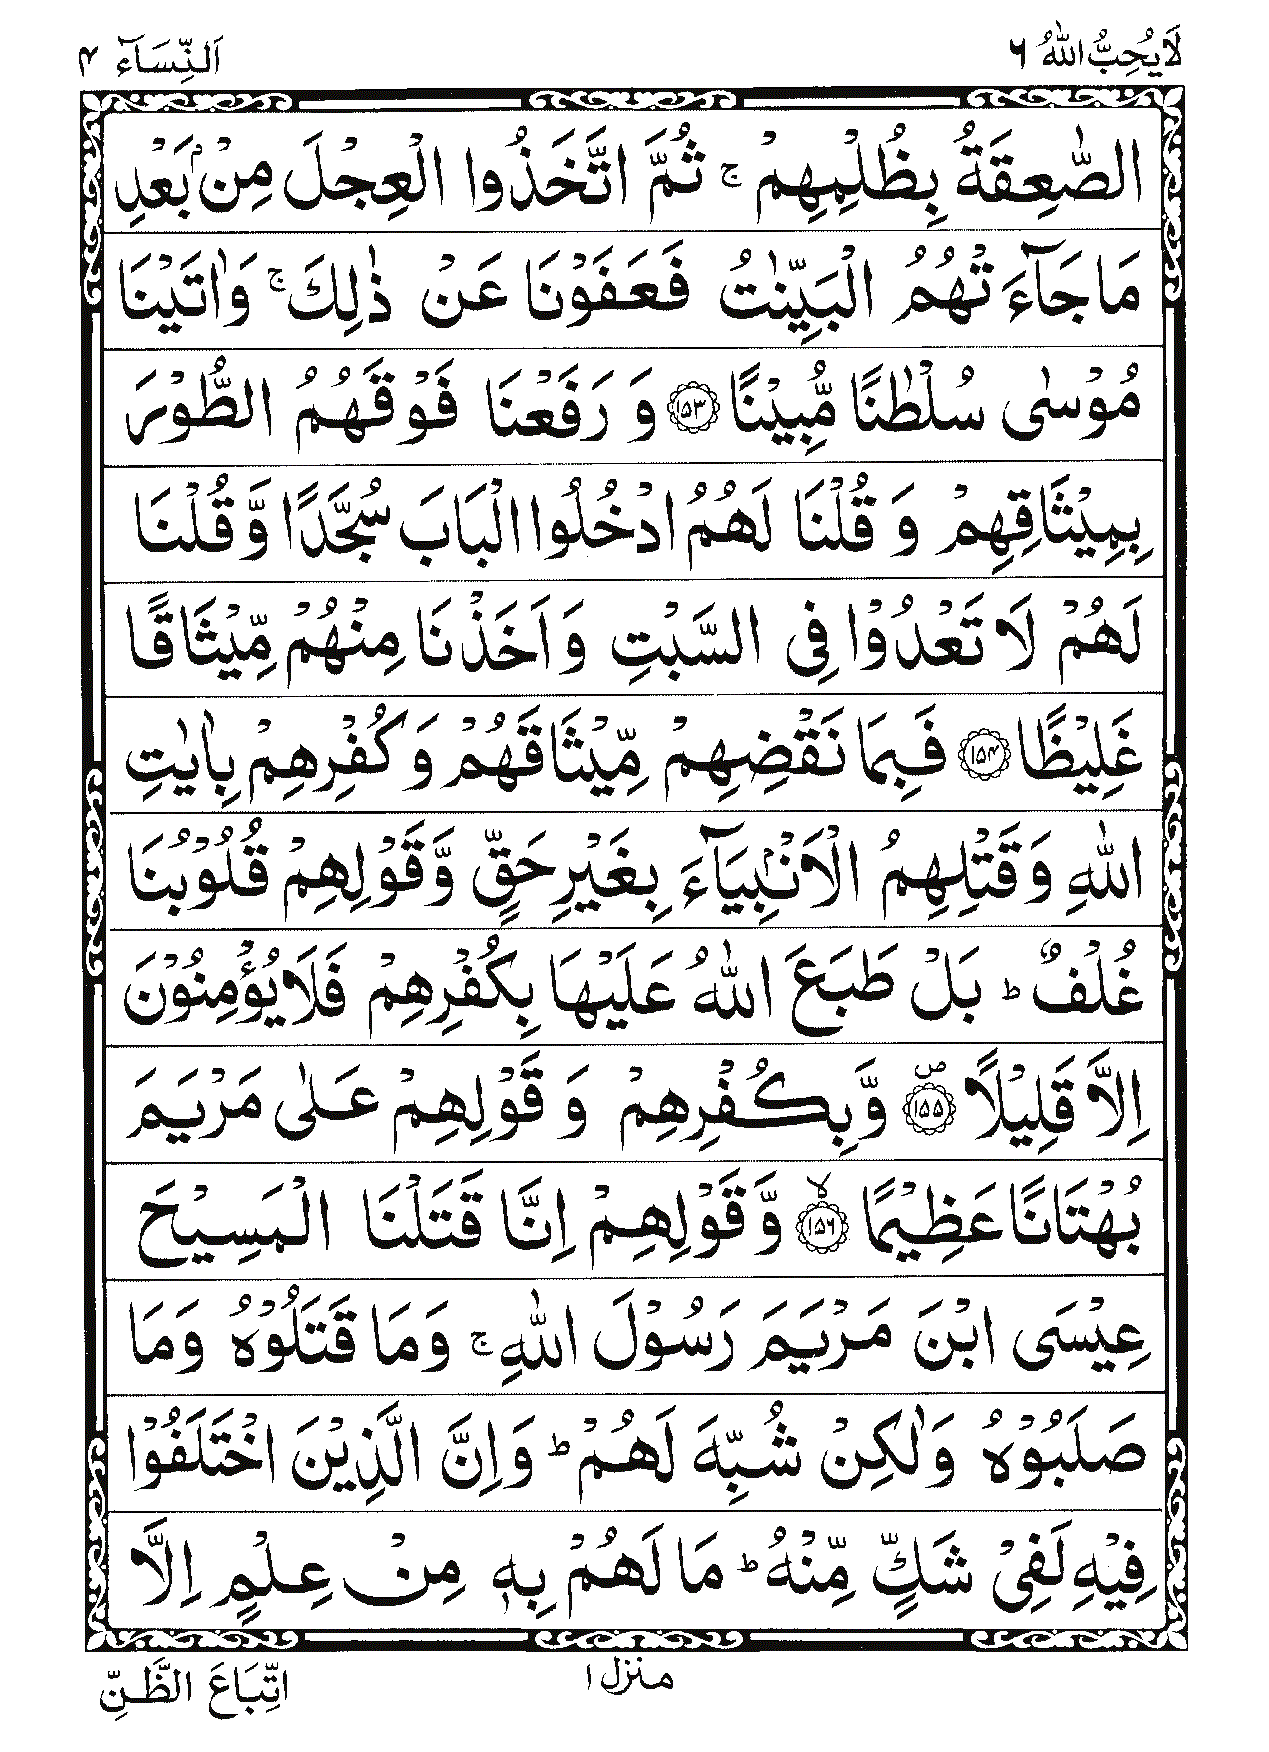 لَا يُحِبُّ اللّٰهُ ٦
اَلنِّسَآء ۴
الصّٰعِقَةُ بِظُلْمِهِمْ ۚ ثُمَّ اتَّخَذُوا الْعِجْلَ مِنْۢ بَعْدِ
مَا جَآءَتْهُمُ الْبَيِّنٰتُ فَعَفَوْنَا عَنْ ذٰلِكَ ۚ وَاٰتَيْنَا
مُوْسٰى سُلْطٰنًا مُّبِيْنًا ﴿۱۵۳﴾ وَ رَفَعْنَا فَوْقَهُمُ الطُّوْرَ
بِمِيْثَاقِهِمْ وَ قُلْنَا لَهُمُ ادْخُلُوا الْبَابَ سُجَّدًا وَّقُلْنَا
لَهُمْ لَا تَعْدُوْا فِى السَّبْتِ وَاَخَذْنَا مِنْهُمْ مِّيْثَاقًا
غَلِيْظًا ﴿۱۵۴﴾ فَبِمَا نَقْضِهِمْ مِّيْثَاقَهُمْ وَكُفْرِهِمْ بِاٰيٰتِ
اللّٰهِ وَقَتْلِهِمُ الْاَنْۢبِيَآءَ بِغَيْرِ حَقٍّ وَّقَوْلِهِمْ قُلُوْبُنَا
غُلْفٌ ؕ بَلْ طَبَعَ اللّٰهُ عَلَيْهَا بِكُفْرِهِمْ فَلَا يُؤْمِنُوْنَ
اِلَّا قَلِيْلًا ﴿۱۵۵﴾ۖ وَّبِكُفْرِهِمْ وَ قَوْلِهِمْ عَلٰى مَرْيَمَ
بُهْتَانًا عَظِيْمًا ﴿۱۵۶﴾ۙ وَّقَوْلِهِمْ اِنَّا قَتَلْنَا الْمَسِيْحَ
عِيْسَى ابْنَ مَرْيَمَ رَسُوْلَ اللّٰهِ ۚ وَمَا قَتَلُوْهُ وَمَا
صَلَبُوْهُ وَلٰكِنْ شُبِّهَ لَهُمْ ؕ وَاِنَّ الَّذِيْنَ اخْتَلَفُوْا
فِيْهِ لَفِىْ شَكٍّ مِّنْهُ ؕ مَا لَهُمْ بِهٖ مِنْ عِلْمٍ اِلَّا
منزل ۱
اتِّبَاعَ الظَّنِّ